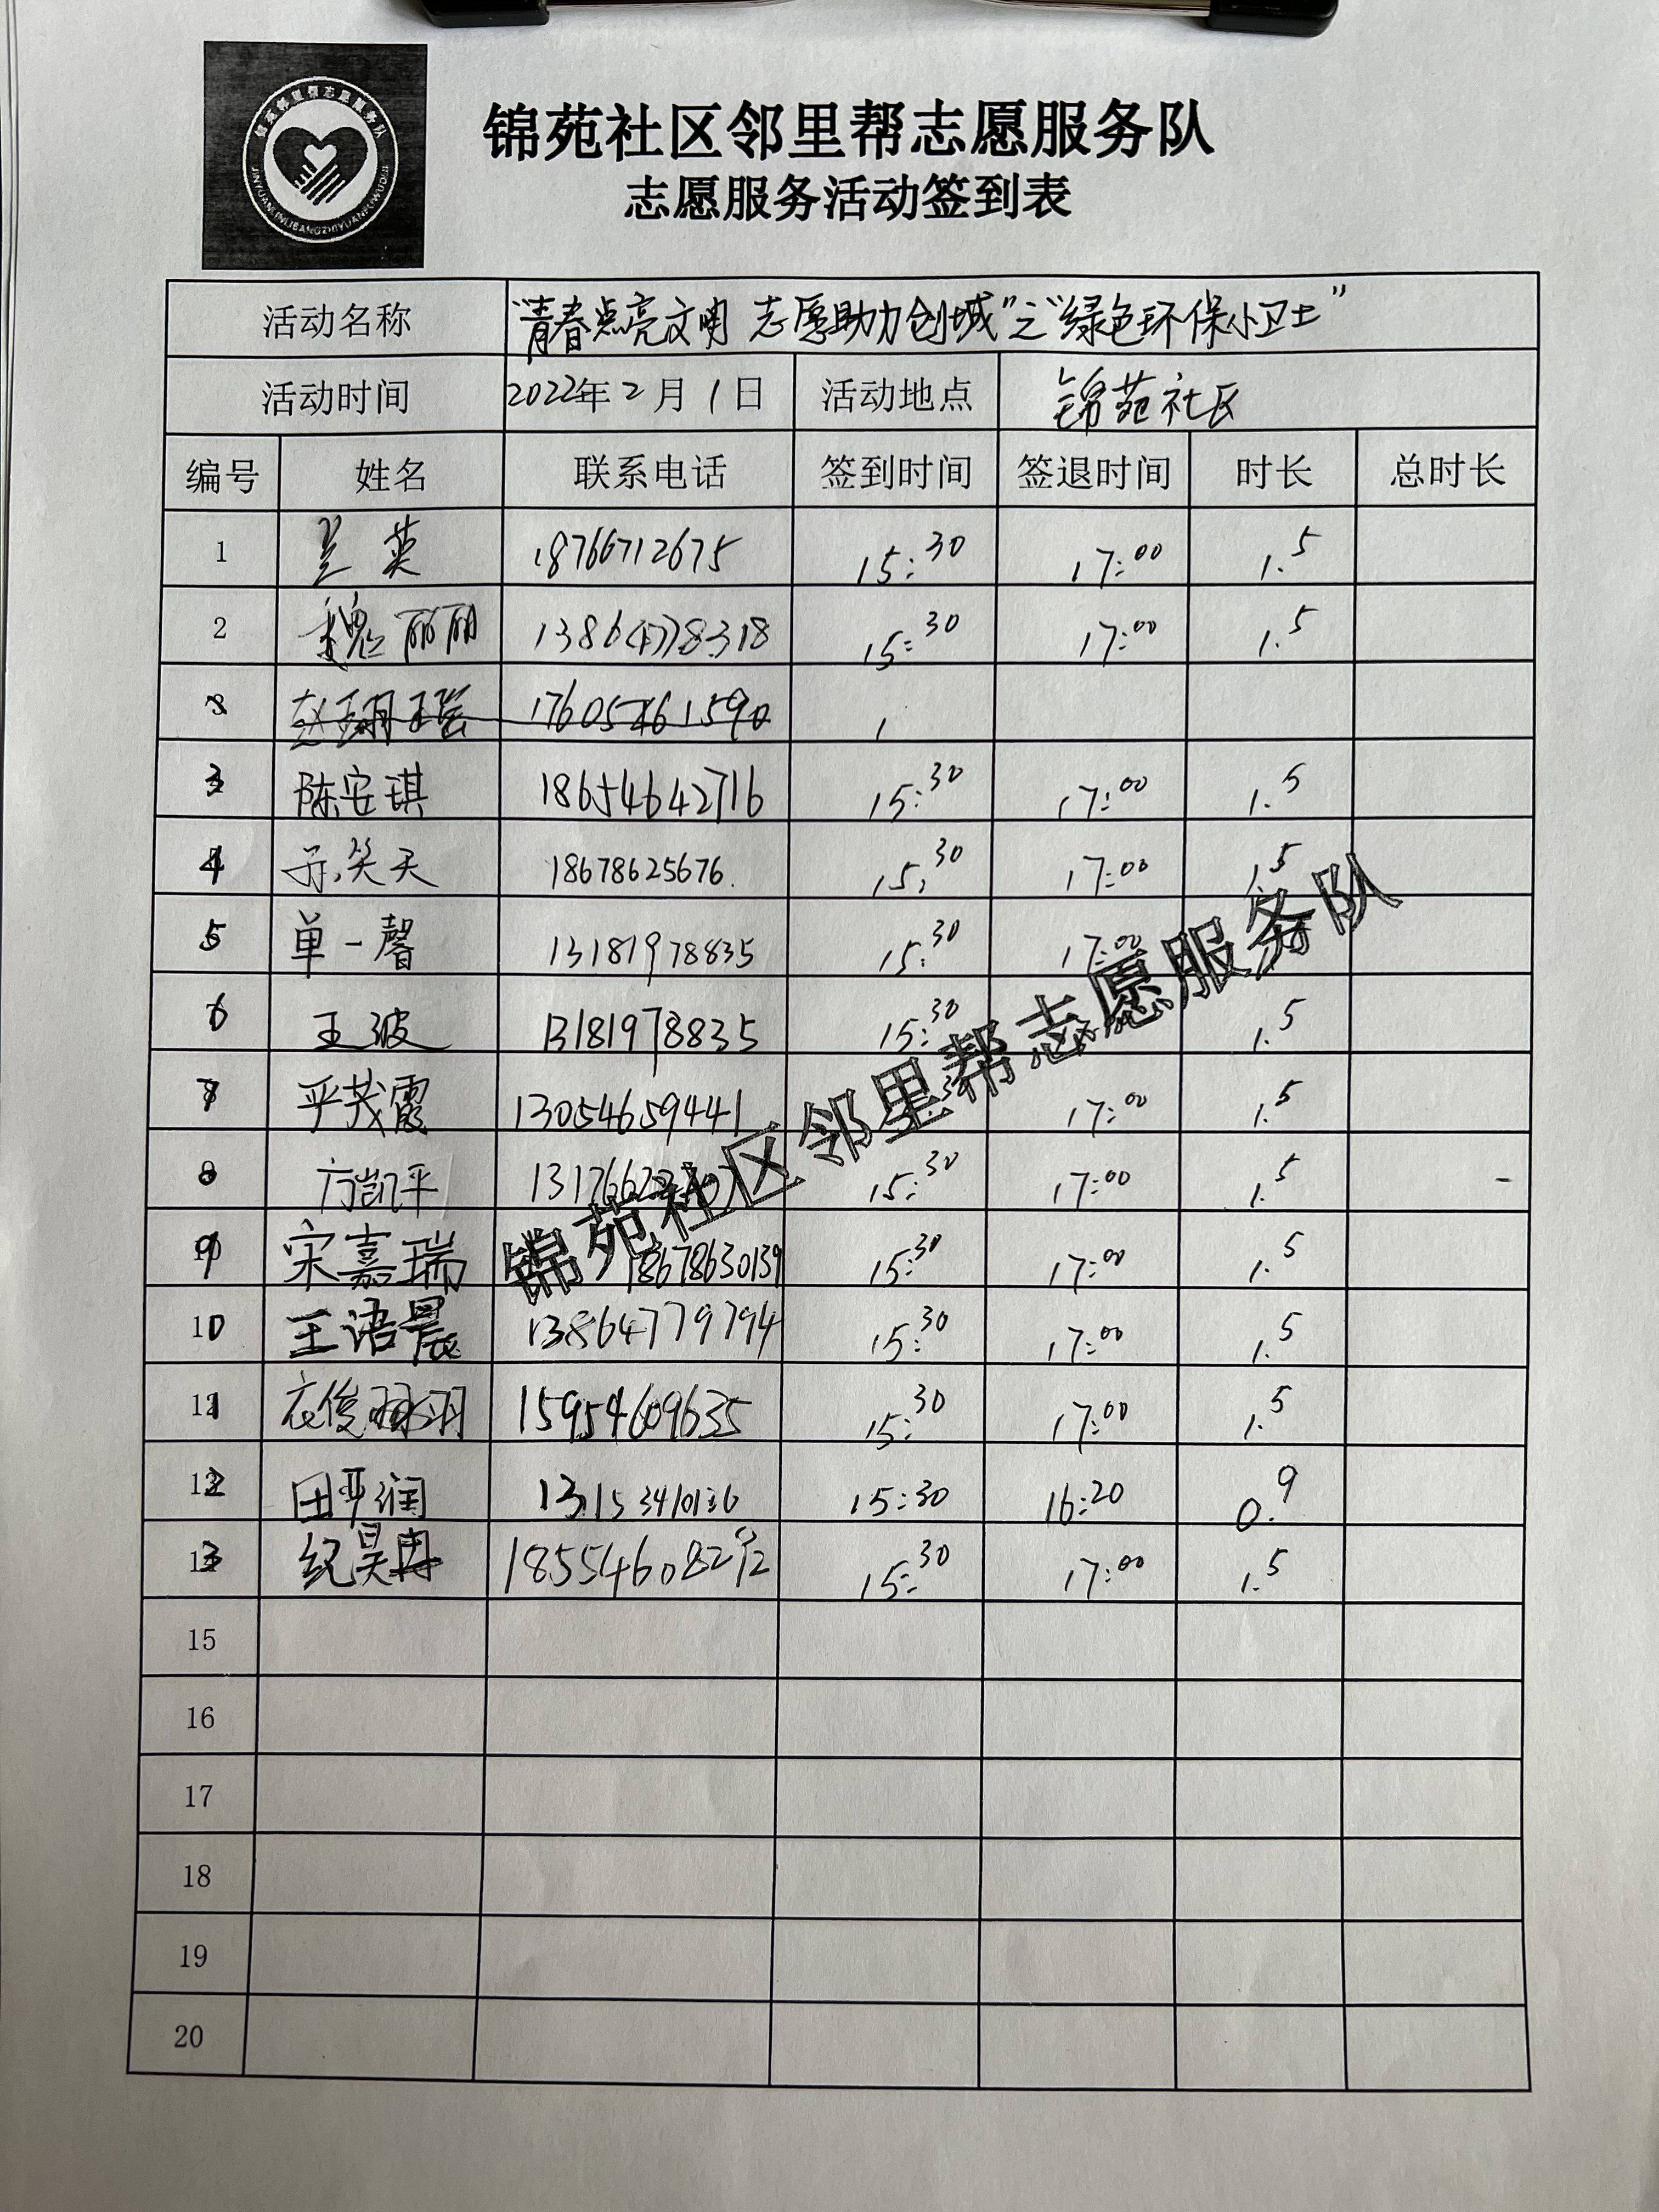 锦苑邻里帮志愿服务队
JINYUANLINLIBANGZHIYUANFUWUDUI
锦苑社区邻里帮志愿服务队
志愿服务活动签到表
活动名称 “青春点亮文明 志愿助力创城”之“绿色环保小卫士”
活动时间 2022年2月1日 活动地点 锦苑社区
编号 姓名 联系电话 签到时间 签退时间 时长 总时长
1 兰英 18766712675 15:30 17:00 1.5
2 魏丽丽 13864778318 15:30 17:00 1.5
17605461590
3 陈安琪 18654642716 15:30 17:00 1.5
4 孙笑天 18678625676. 15:30 17:00 1.5
5 单一馨 13181978835 15:30 17:00
6 王波 13181978835 15:30 17:00 1.5
7 平茂霞 13054659441 17:00 1.5
8 方凯平 15:30 17:00 1.5
9 宋嘉瑞 18678630139 15:30 17:00 1.5
10 王语晨 13864779794 15:30 17:00 1.5
11 衣俊 15954609635 15:30 17:00 1.5
12 田亚润 15:30 16:20 0.9
13 纪昊冉 15:30 17:00 1.5
15
16
17
18
19
20
锦苑社区邻里帮志愿服务队